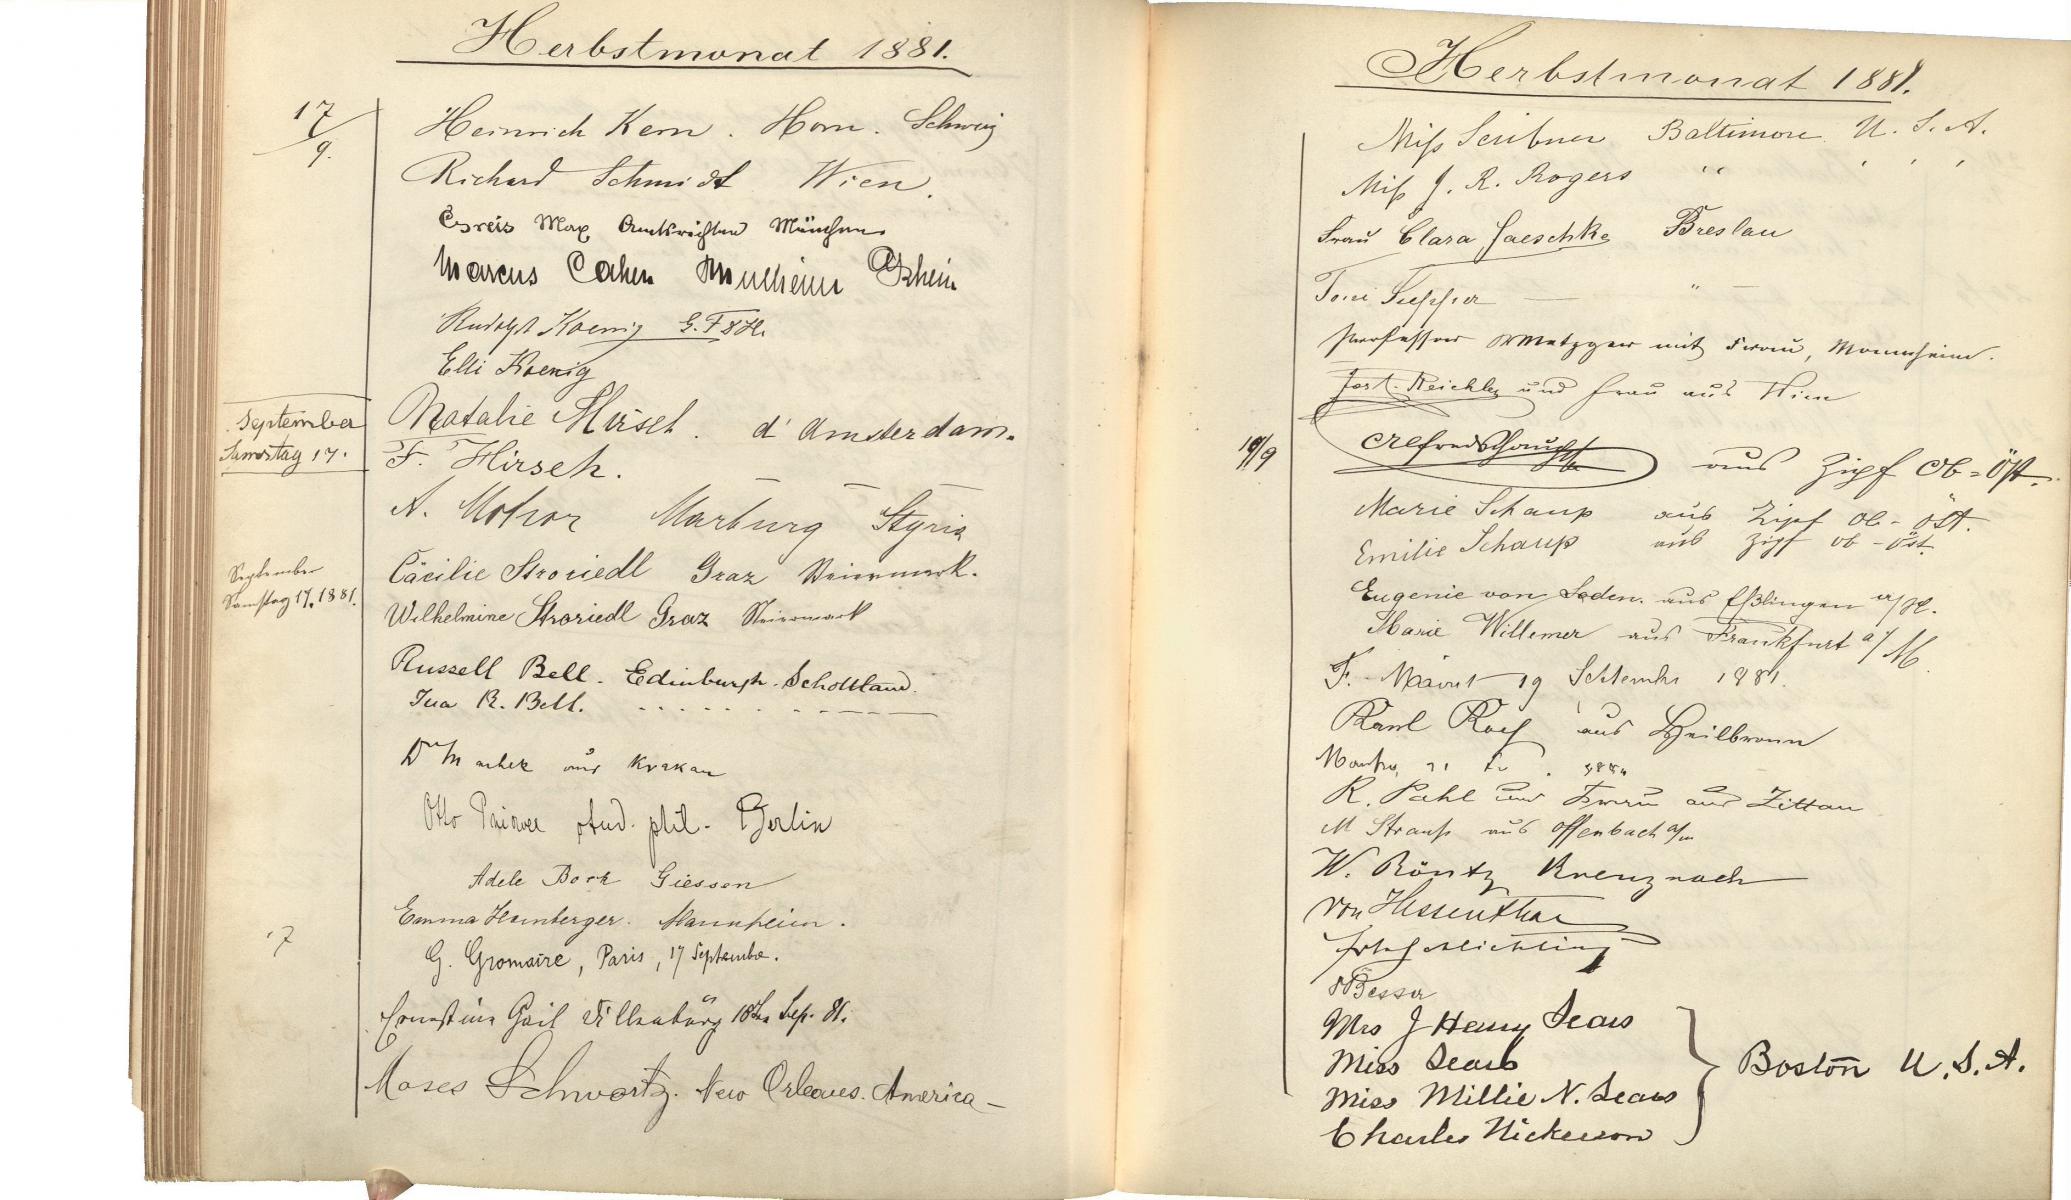 Herbstmonat 1881.
17/9.
Heinrich Kern. Horn. Schweiz
Richard Schmidt Wien.
Greis Max Amtsrichter München
Marcus Cahen Mülheim a/Rhein
Rudolph Koenig
Elli Koenig
September
Samstag 17.
Natalie Hirsch. d'Amsterdam.
F. Hirsch.
A. Marburg Styria
September
Samstag 17. 1881.
Cäcilie Stroriedl Graz Steiermark.
Wilhelmine Stroriedl Graz Steiermark
Russell Bell. Edinburgh. Schottland.
Ina R. Bell.
Dr aus Krakau
Otto stud. phil. Berlin
Adele Bock Giessen
Emma Hamberger. Mannheim.
17
G. Gromaire, Paris, 17 Septembre.
Ernestine Gail Sep. 81.
Moses Schwartz. New Orleans. America
Herbstmonat 1881.
Miss Scribner Baltimore U. S. A.
Miss J. R. Rogers " ' ' '
Frau Clara Jaeschke Breslau
Toni — " —
Professor Metzger mit Frau, Mannheim.
und Frau aus Wien
19/9
Alfred Schaup aus Zipf Ob-Öst.
Marie Schaup aus Zipf Ob-Öst.
Emilie Schaup aus Zipf Ob-Öst.
Eugenie von Loden. aus Eßlingen a/N.
Marie Willemer aus Frankfurt a/M.
F. 19 September 1881.
Karl aus Heilbronn
R. Pahl und Frau aus Zittau
M Strauß aus Offenbach a/m
W. Röntz Kreuznach
von Hessenthal
Besser
Mrs J Henry Sears
Miss Sears
Miss Millie N. Sears
Boston U. S. A.
Charles Nickerson